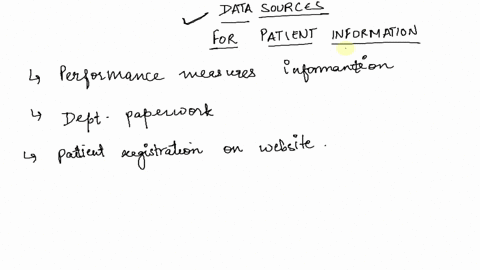 DATA SOURCES
FOR PATIENT INFORMATION
↳ Performance measures informantion
↳ Dept. paperwork
↳ patient registration on website.